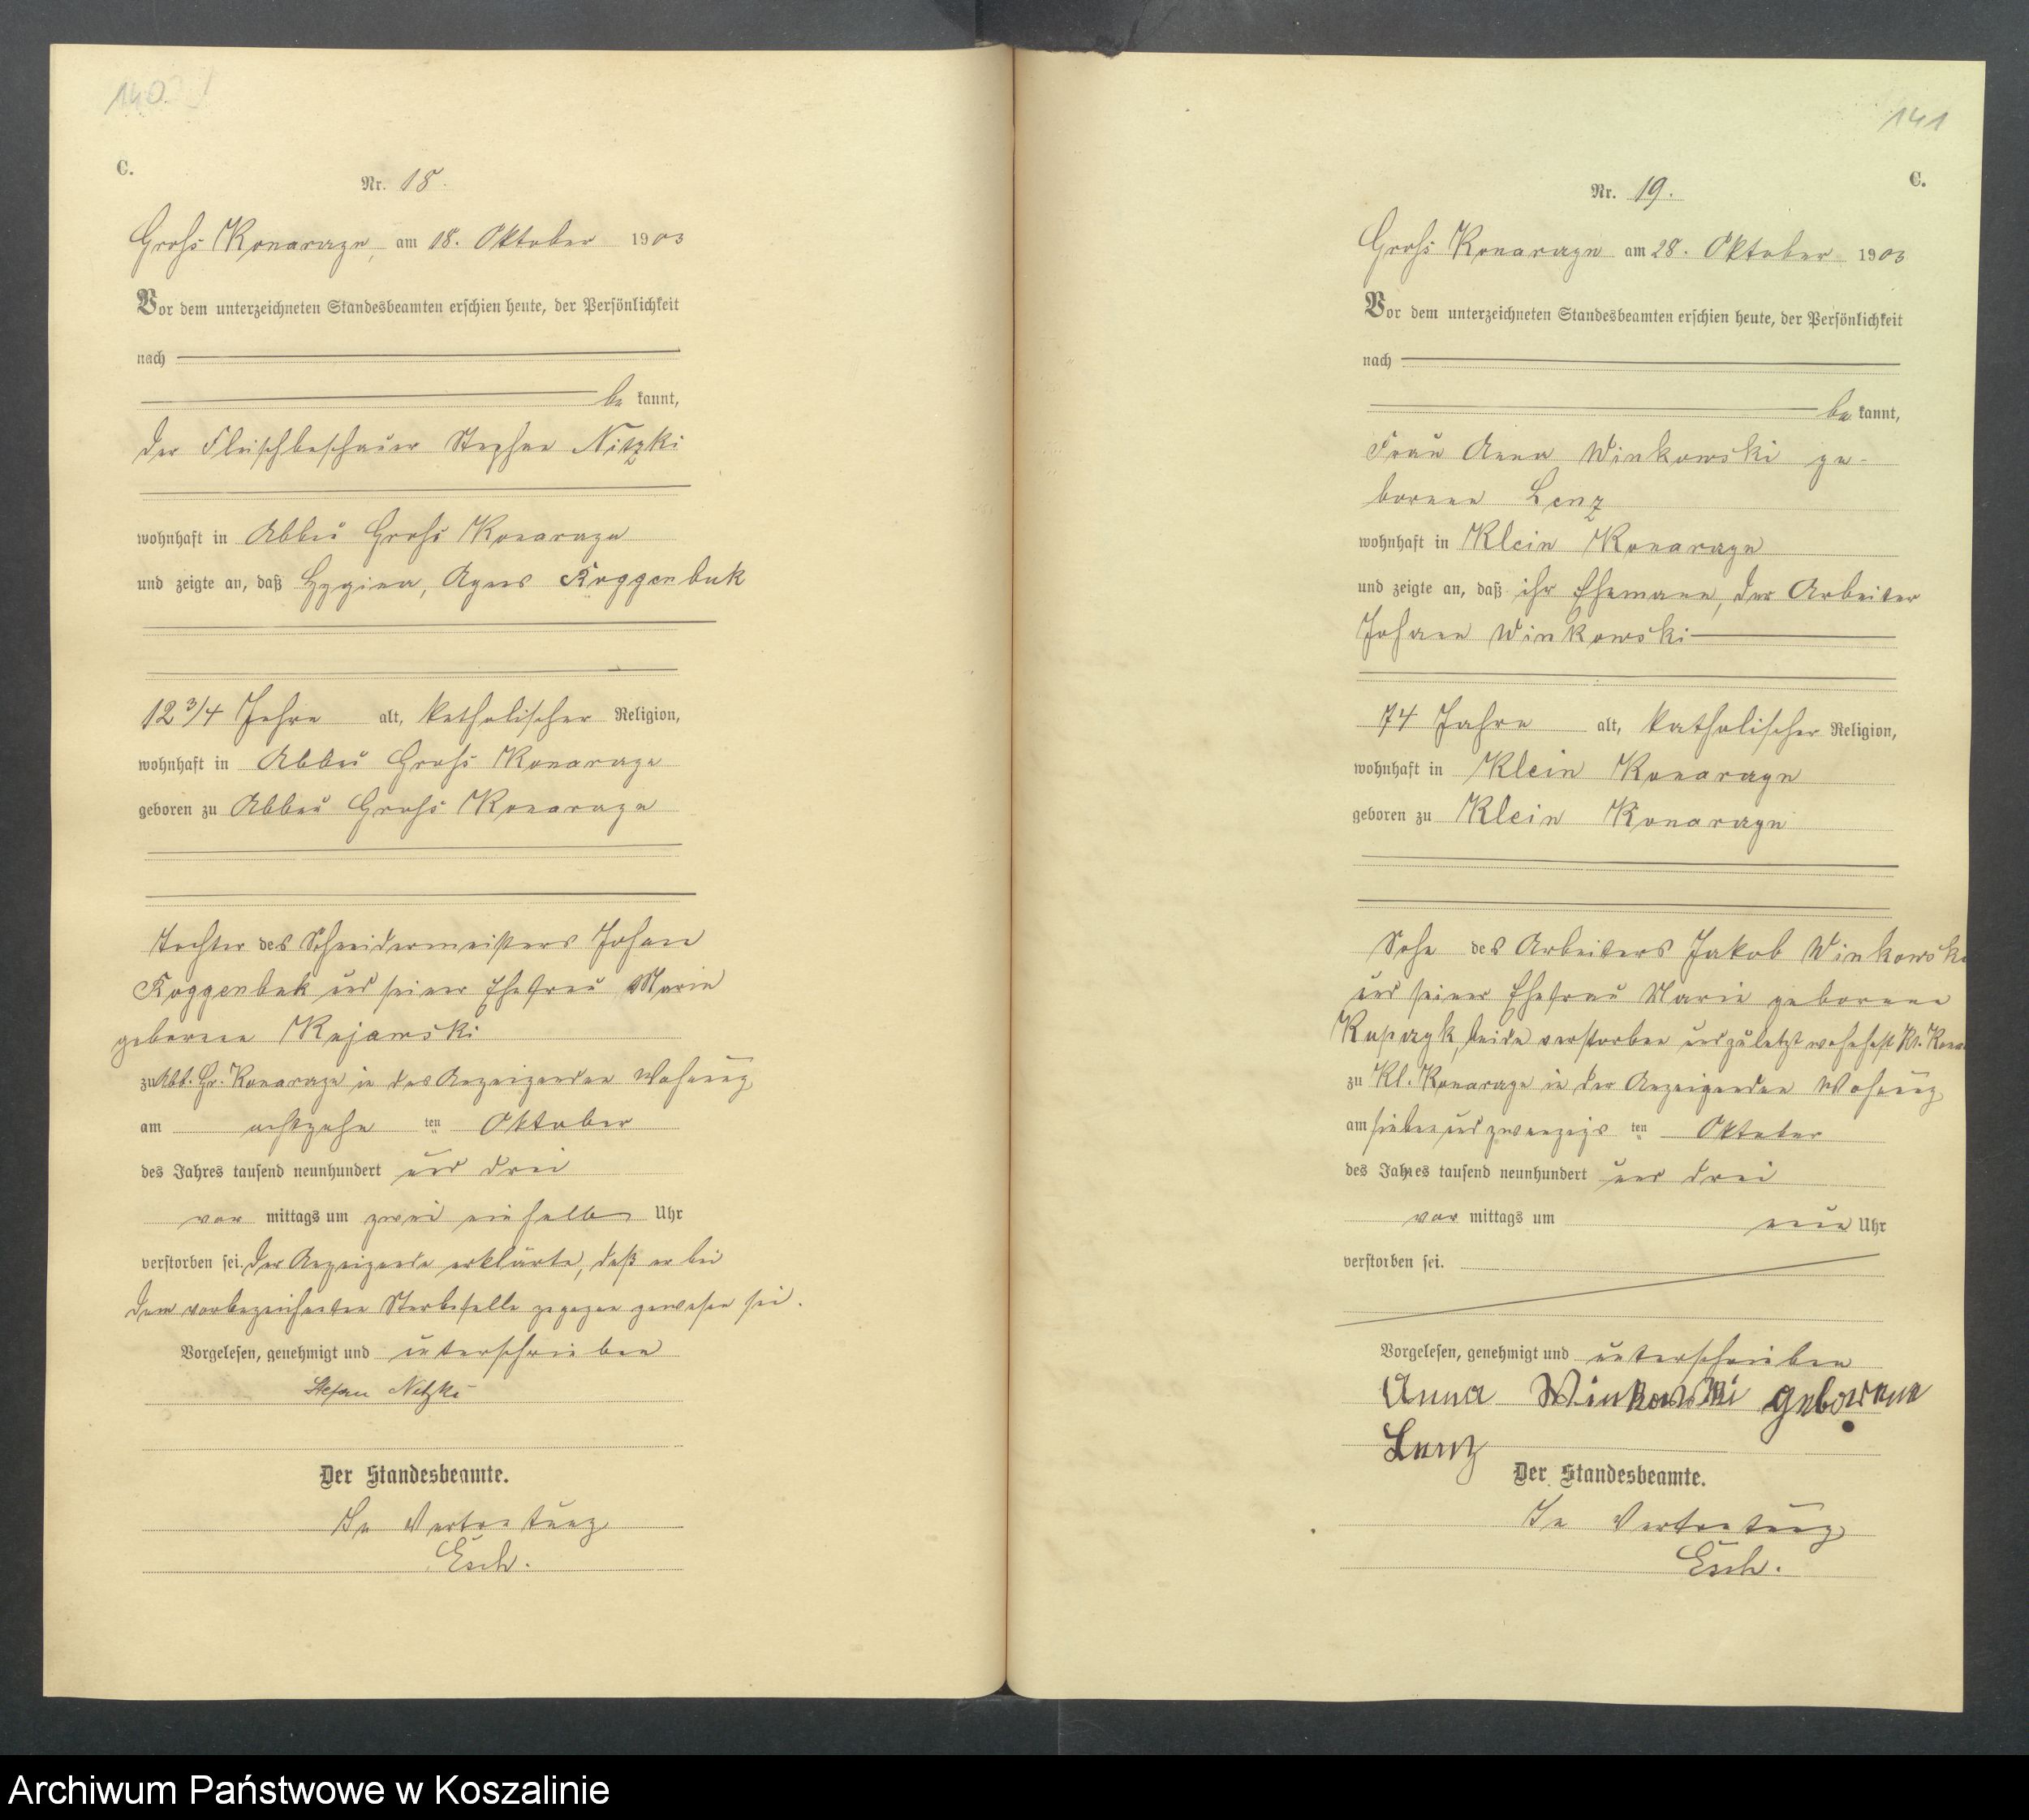 140
C.
Nr. 18.
Groß Konarczyn, am 18. Oktober 1903
Vor dem unterzeichneten Standesbeamten erschien heute, der Persönlichkeit
nach
be kannt,
der Fleischbeschauer Stephan Nitzki
wohnhaft in Abbau Groß Konarczyn
und zeigte an, daß Hygina, Agnes Roggenbuk
12 3/4 Jahre alt, katholischer Religion,
wohnhaft in Abbau Groß Konarczyn
geboren zu Abbau Groß Konarczyn
Tochter des Schneidermeisters Johann
Roggenbuk und seiner Ehefrau Marie
geborene Kujawski
zu Abb. Gr. Konarczyn in des Anzeigenden Wohnung
am achtzehn ten Oktober
des Jahres tausend neunhundert und drei
vor mittags um zwei einhalb Uhr
verstorben sei. Der Anzeigende erklärte, daß er bei
dem vorbezeichneten Sterbefalle zugegen gewesen sei.
Vorgelesen, genehmigt und unterschrieben
Stefan Nitzki
Der Standesbeamte.
In Vertretung
Esch.
141
C.
Nr. 19.
Groß Konarczyn am 28. Oktober 1903
Vor dem unterzeichneten Standesbeamten erschien heute, der Persönlichkeit
nach
be kannt,
Frau Anna Winkowski ge-
borene Lenz
wohnhaft in Klein Konarczyn
und zeigte an, daß ihr Ehemann, der Arbeiter
Johann Winkowski
74 Jahre alt, katholischer Religion,
wohnhaft in Klein Konarczyn
geboren zu Klein Konarczyn
Sohn des Arbeiters Jakob Winkowski
und seiner Ehefrau Marie geborene
beide verstorben und zuletzt wohnhaft Kl. Konar
zu Kl. Konarczyn in der Anzeigenden Wohnung
am siebenundzwanzigs ten Oktober
des Jahres tausend neunhundert und drei
vor mittags um neun Uhr
verstorben sei.
Vorgelesen, genehmigt und unterschrieben
Anna Winkowski geborene
Lenz
Der Standesbeamte.
In Vertretung
Esch.
Archiwum Państwowe w Koszalinie